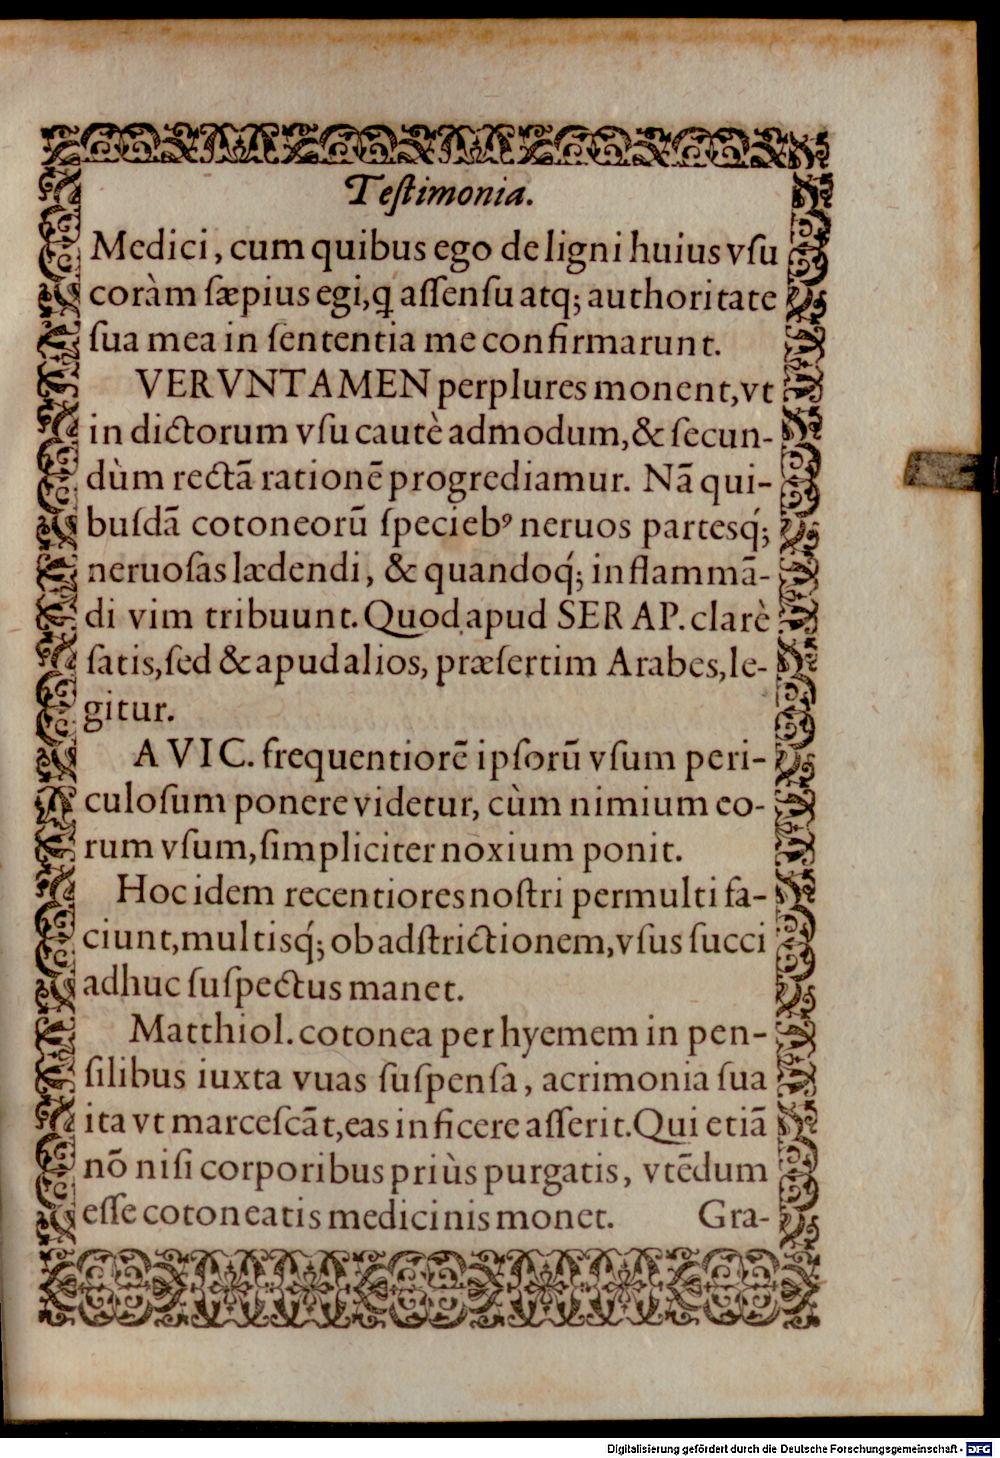 Testimonia.
Medici, cum quibus ego de ligni huius vſu
coràm ſæpius egi, q̨ aſſenſu atq; authoritate
ſua mea in ſententia me confirmarunt.
VERVNTAMEN perplures monent, vt
in dictorum vſu cautè admodum, & ſecun-
dùm rectã rationẽ progrediamur. Nã qui-
buſdã cotoneorũ ſpecieb⁹ neruos partesq́;
neruoſas lædendi, & quandoq́; inflammã-
di vim tribuunt. Quod apud SERAP. clarè
ſatis, ſed & apud alios, præſertim Arabes, le-
gitur.
AVIC. frequentiorẽ ipſorũ vſum peri-
culoſum ponere videtur, cùm nimium eo-
rum vſum, ſimpliciter noxium ponit.
Hoc idem recentiores noſtri permulti fa-
ciunt, multisq́; ob adſtrictionem, vſus ſucci
adhuc ſuſpectus manet.
Matthiol. cotonea per hyemem in pen-
ſilibus iuxta vuas ſuſpenſa, acrimonia ſua
ita vt marceſcãt, eas inficere aſſerit. Qui etiã
nõ niſi corporibus priùs purgatis, vtẽdum
eſſe cotoneatis medicinis monet. Gra-
Digitalisierung gefördert durch die Deutsche Forschungsgemeinschaft - DFG